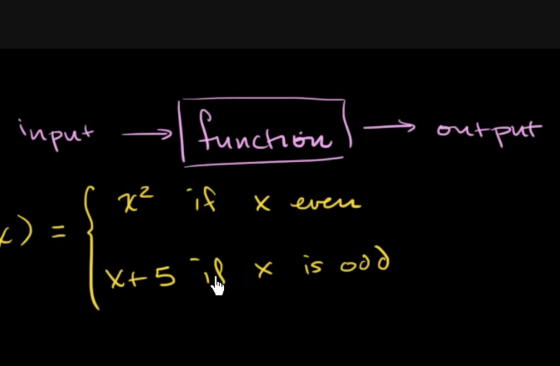 input → function → output
x) = { x² if x even
x+5 if x is odd